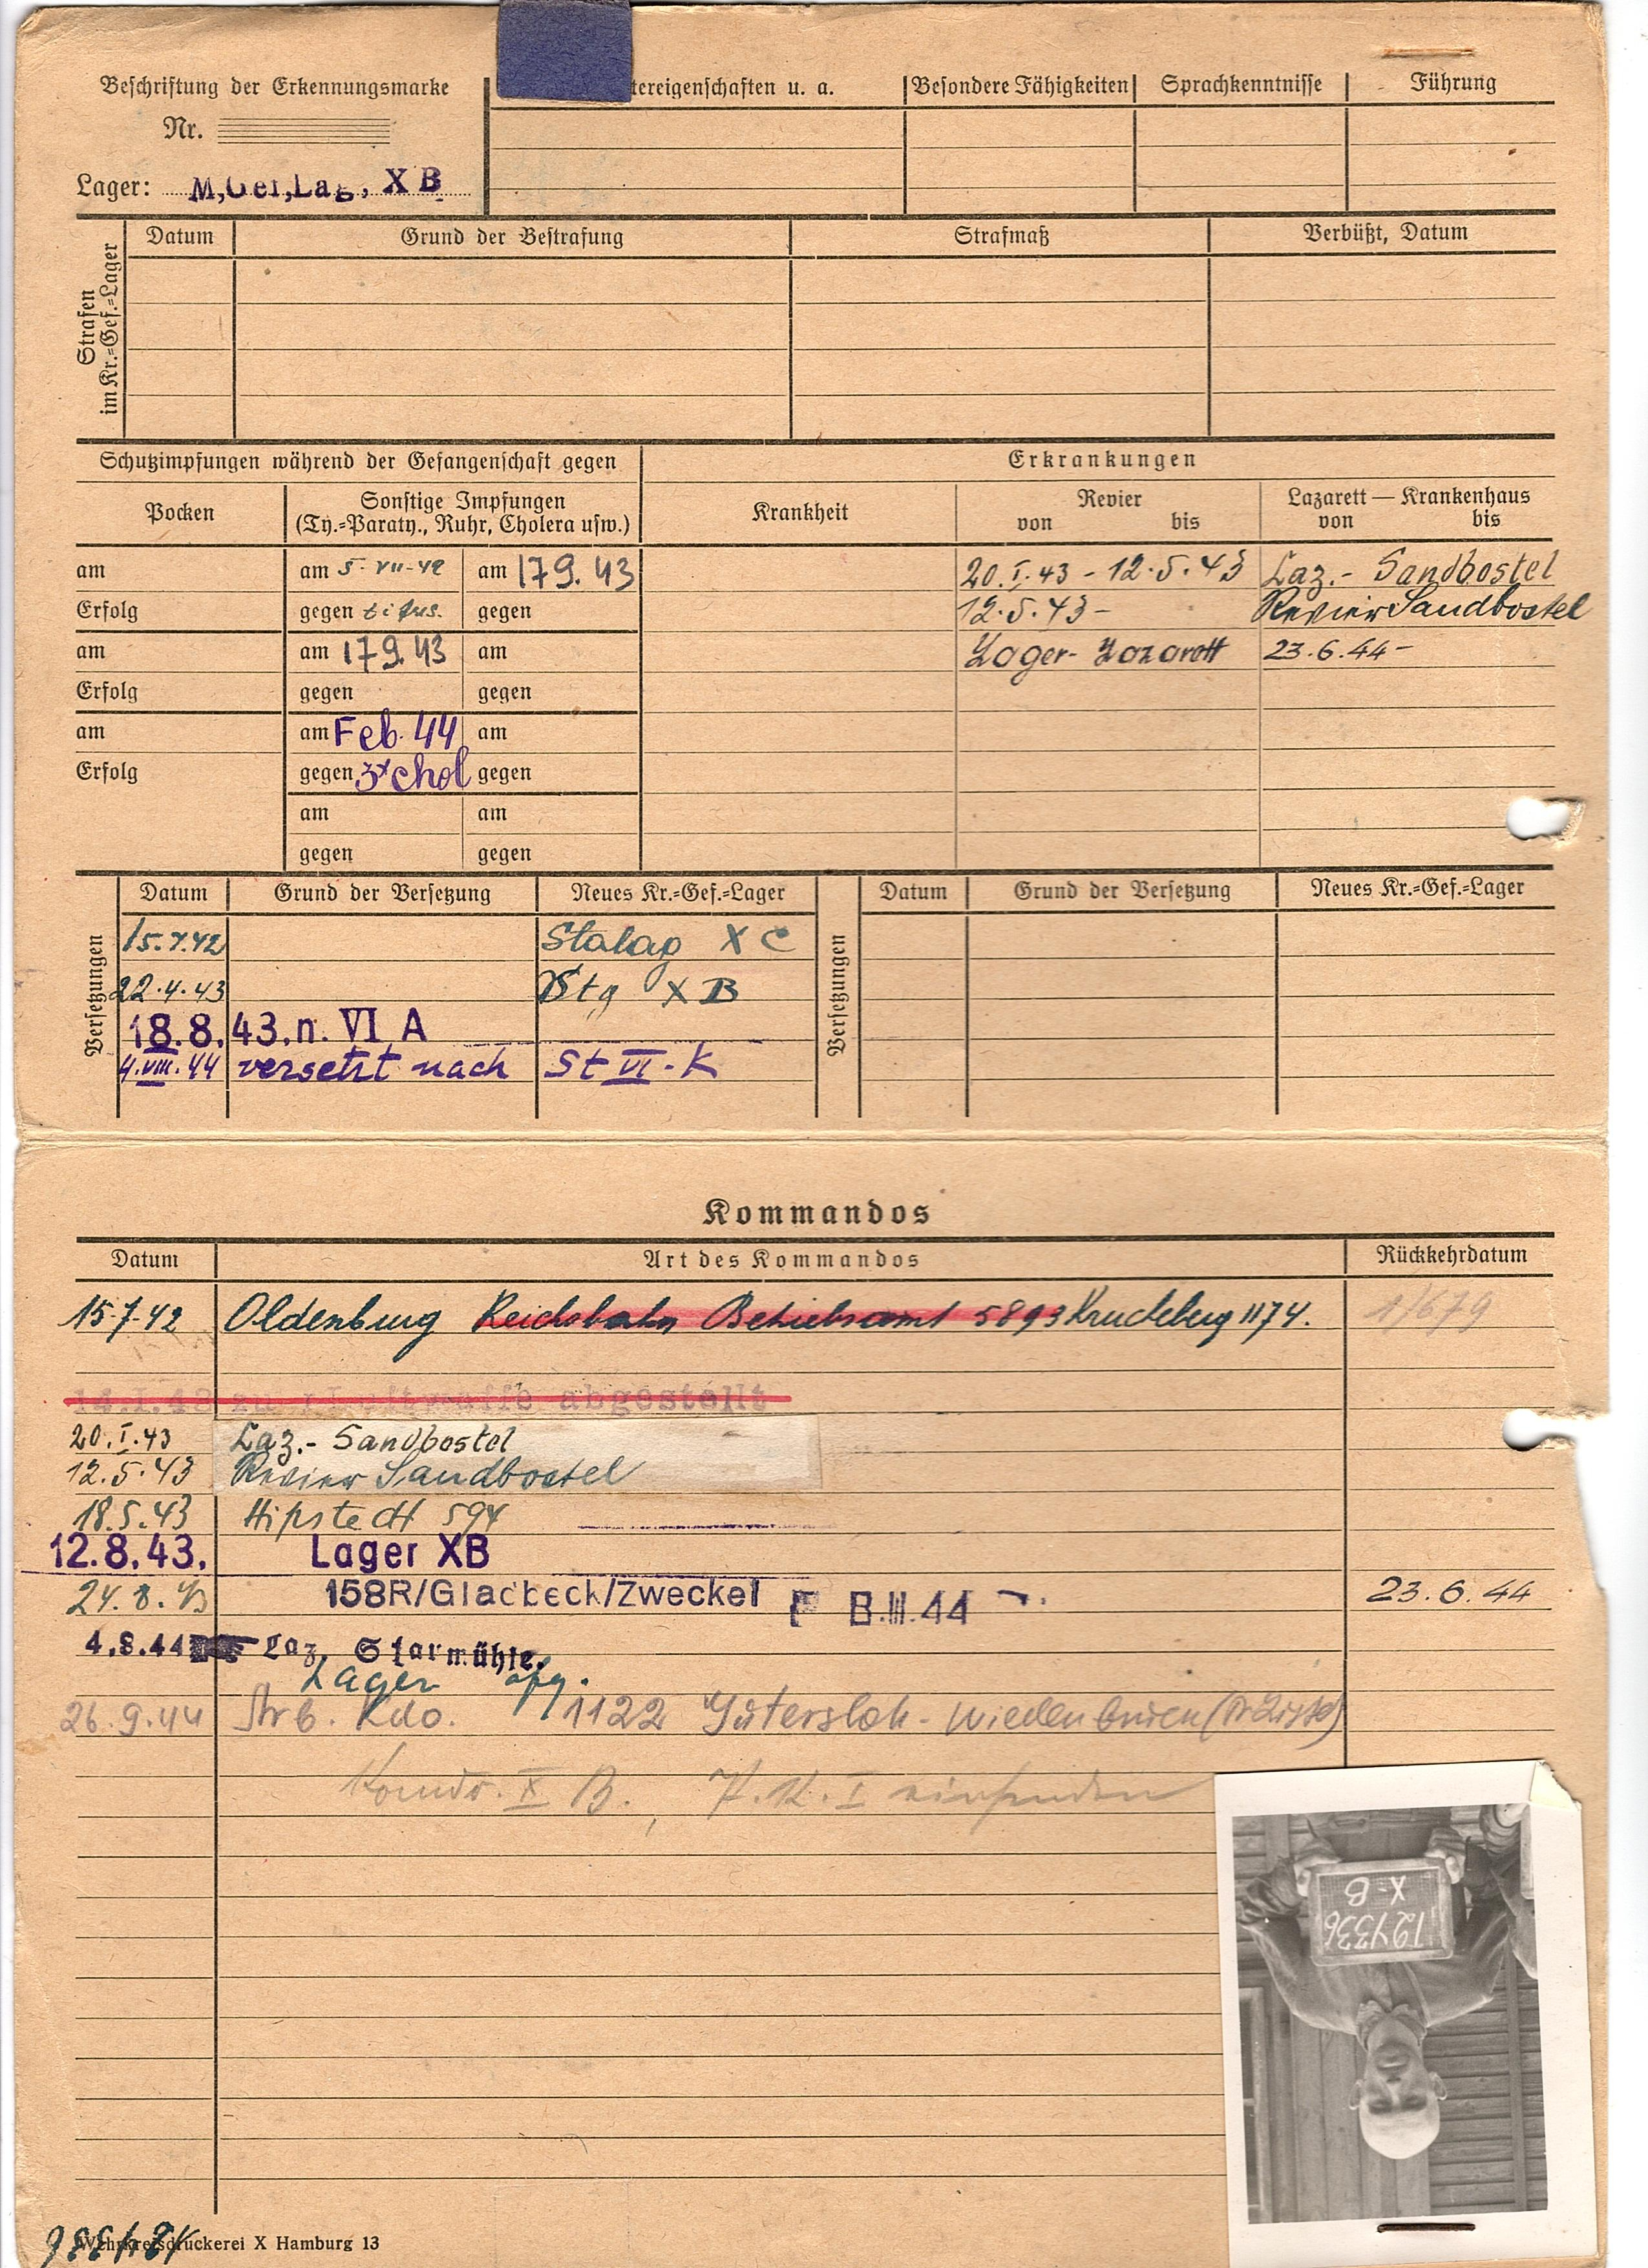 Beschriftung der Erkennungsmarke
tereigenschaften u. a.
Besondere Fähigkeiten
Sprachkenntnisse
Führung
Nr.
Lager: M,Gef,Lag, X B
Strafen im Kr.=Gef.=Lager
Datum
Grund der Bestrafung
Strafmaß
Verbüßt, Datum
Schutzimpfungen während der Gefangenschaft gegen
Erkrankungen
Pocken
Sonstige Impfungen
(Ty.=Paraty., Ruhr, Cholera usw.)
Krankheit
Revier
von bis
Lazarett — Krankenhaus
von bis
am am 5-VII-42 am 179.43 20.I.43 - 12.5.43 Laz.- Sandbostel
Erfolg gegen tifus. gegen 12.5.43 - Revier Sandbostel
am am 179.43 am Lager- Lazarett 23.6.44 -
Erfolg gegen gegen
am am Feb. 44 am
Erfolg gegen 3x chol gegen
am am
gegen gegen
Versetzungen
Datum Grund der Versetzung Neues Kr.=Gef.=Lager
Versetzungen
Datum Grund der Versetzung Neues Kr.=Gef.=Lager
15.7.42 Stalag X C
22.4.43 Stg X B
18.8.43.n. VI A
4.VIII.44 versetzt nach St VI-K
Kommandos
Datum Art des Kommandos Rückkehrdatum
15.7.42 Oldenburg Reichsbahn Betriebsamt 5893 1174. 1/679
abgestellt
20.I.43 Laz.- Sandbostel
12.5.43 Revier Sandbostel
18.5.43 Hipstedt 594
12.8.43. Lager XB
24.8.43 158R/Gladbeck/Zweckel 8.III.44 23.6.44
4.8.44 Laz. Starmühle.
Lager
26.9.44 Arb. Kdo. 1122 Gütersloh - Wiedenbrück
X B.
X-B
124336
124336
Wehrkreisdruckerei X Hamburg 13